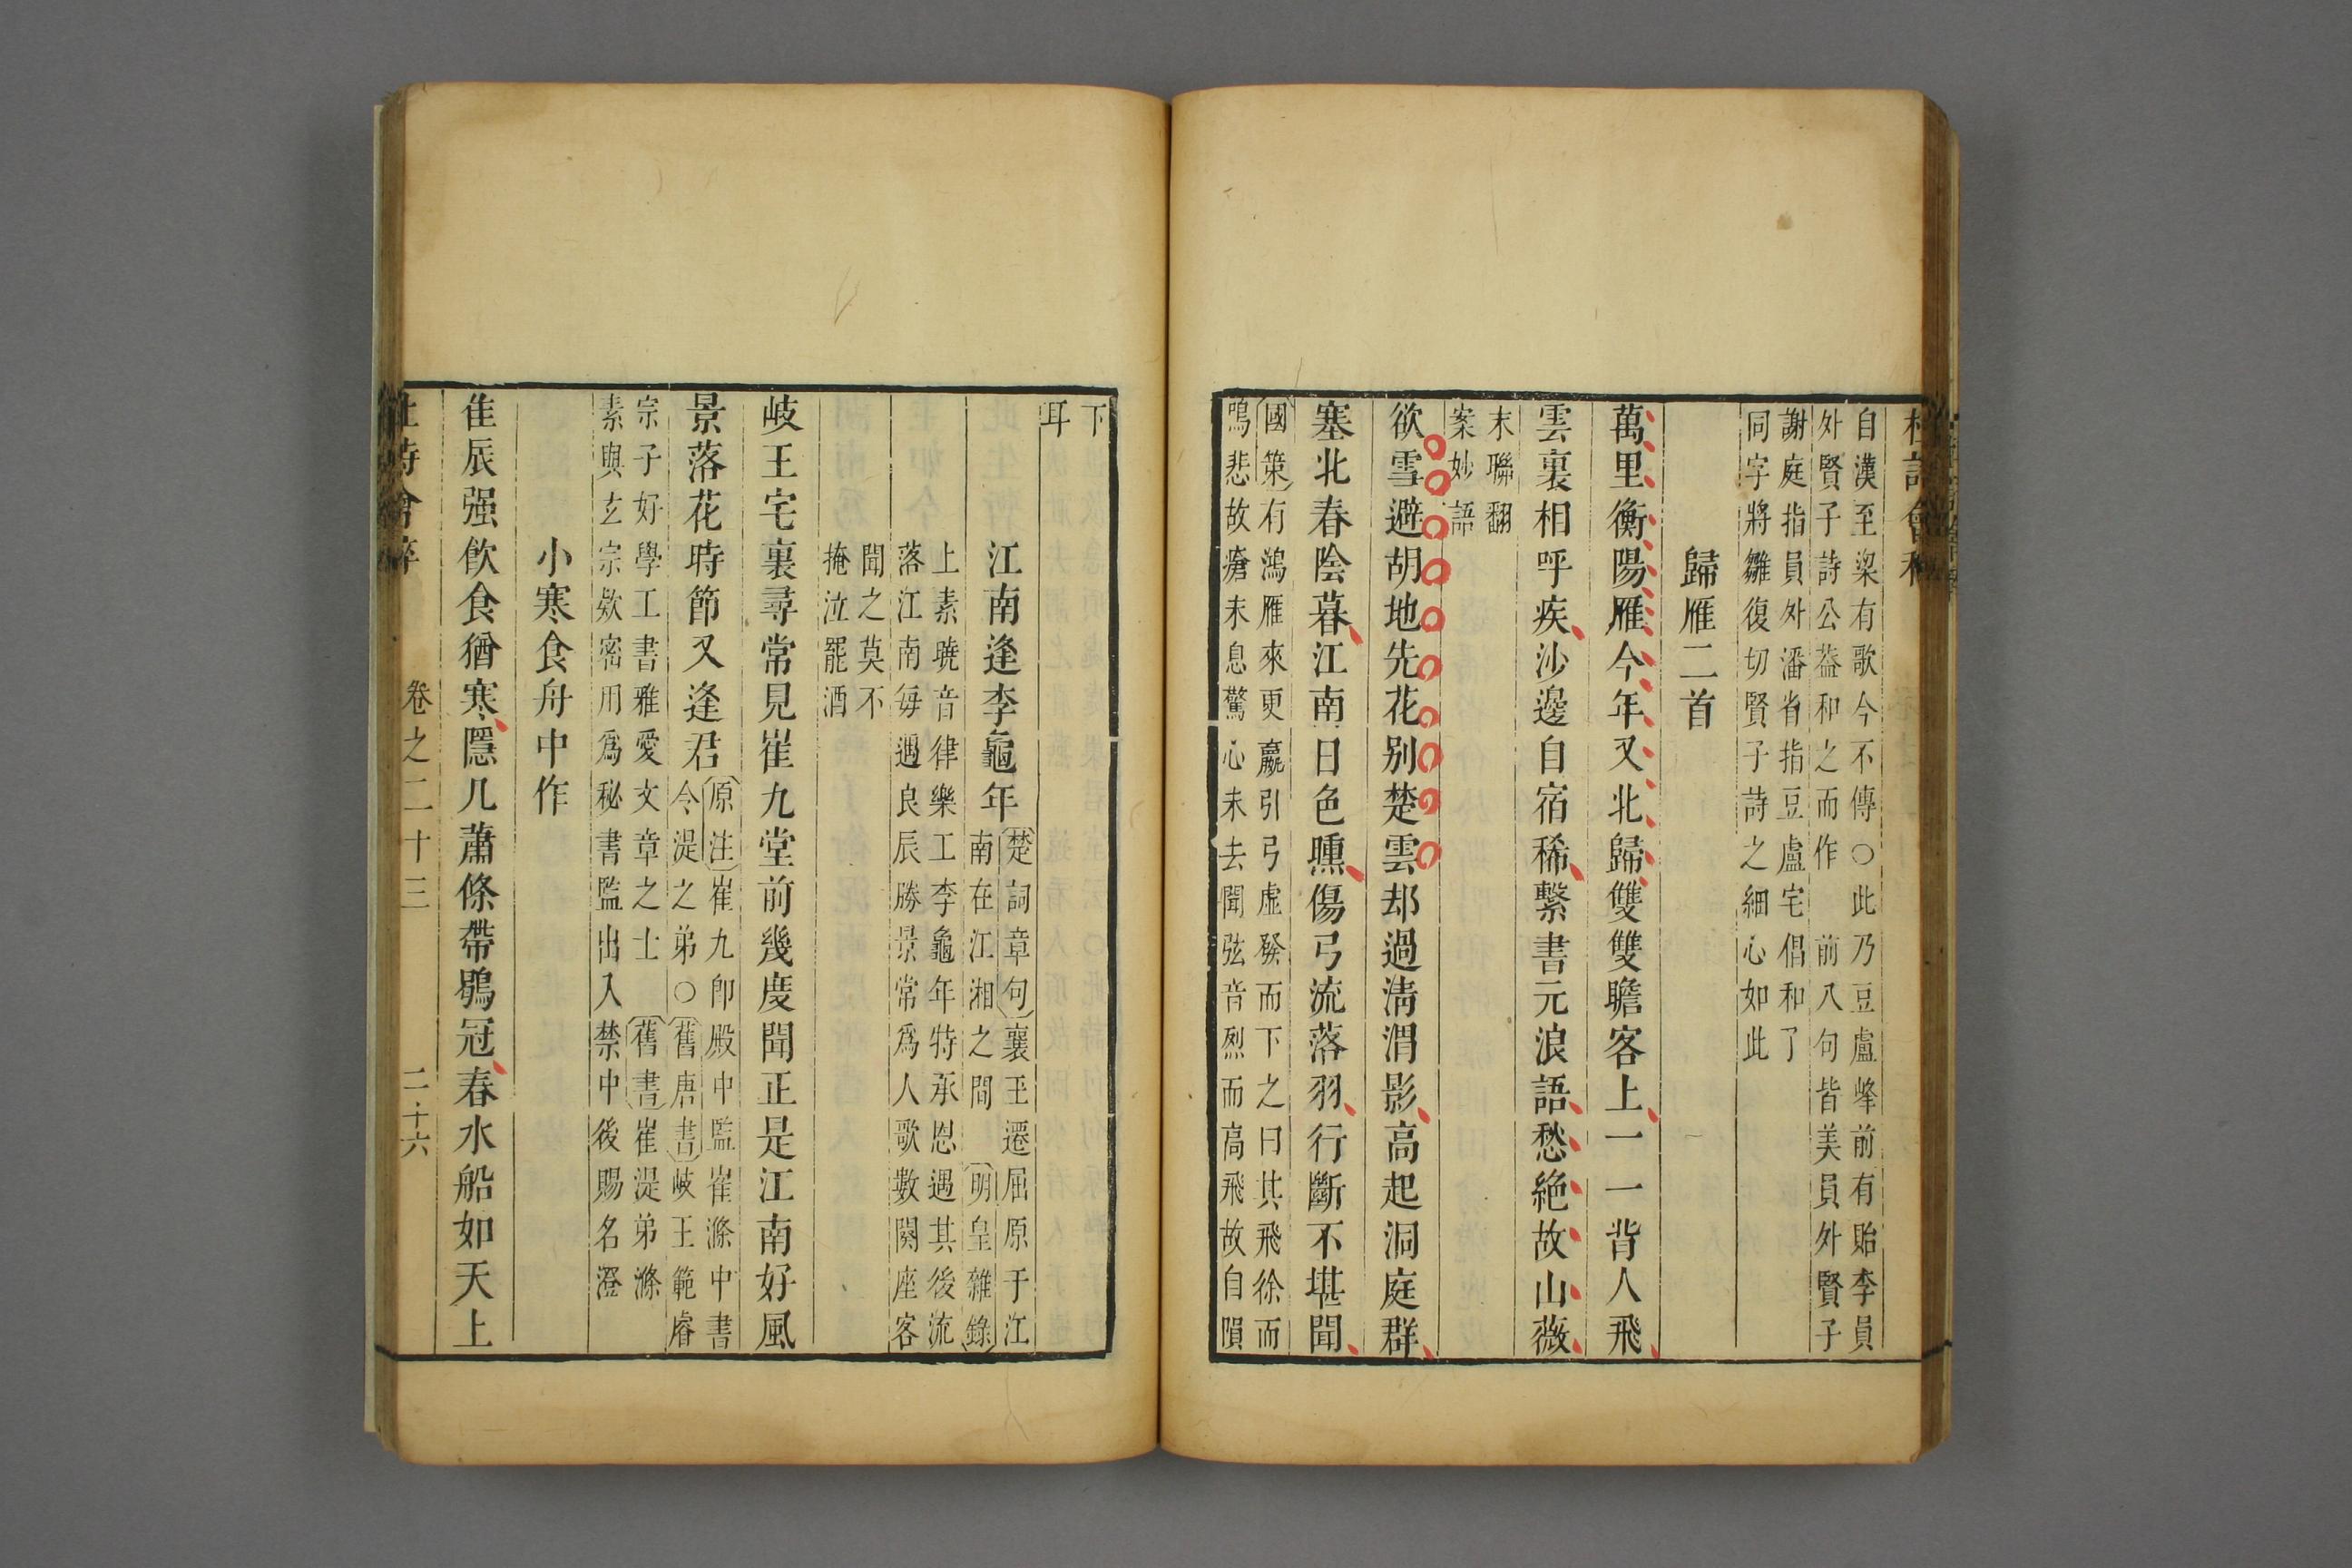 杜詩會稡
自漢至梁有歌今不傳○此乃豆盧峰前有貽李員
外賢子詩公葢和之而作　前八句皆美員外賢子
謝庭指員外潘省指豆盧宅倡和了
同字將雛復切賢子詩之細心如此
歸雁二首
萬里衡陽雁今年又北歸雙雙瞻客上一一背人飛
雲裏相呼疾沙邊自宿稀繫書元浪語愁絶故山薇
末聯翻
案妙語
欲雪避胡地先花别楚雲却過清渭影高起洞庭群
塞北春陰暮江南日色曛傷弓流落羽行斷不堪聞
國策有鴻雁來更羸引弓虛發而下之曰其飛徐而
鳴悲故瘡未息驚心未去聞弦音烈而高飛故自隕
下
耳
江南逢李龜年
楚詞章句襄王遷屈原于江
南在江湘之間　明皇雜錄
上素曉音律樂工李龜年特承恩遇其後流
落江南每遇良辰勝景常爲人歌數闋座客
聞之莫不
掩泣罷酒
岐王宅裏尋常見崔九堂前幾度聞正是江南好風
景落花時節又逢君
原注崔九即殿中監崔滌中書
令湜之弟○舊唐書岐王範睿
宗子好學工書雅愛文章之士　舊書崔湜弟滌
素與玄宗欵密用爲秘書監出入禁中後賜名澄
小寒食舟中作
佳辰强飲食猶寒隱几蕭條帶鶡冠春水船如天上
杜詩會稡　卷之二十三　二十六